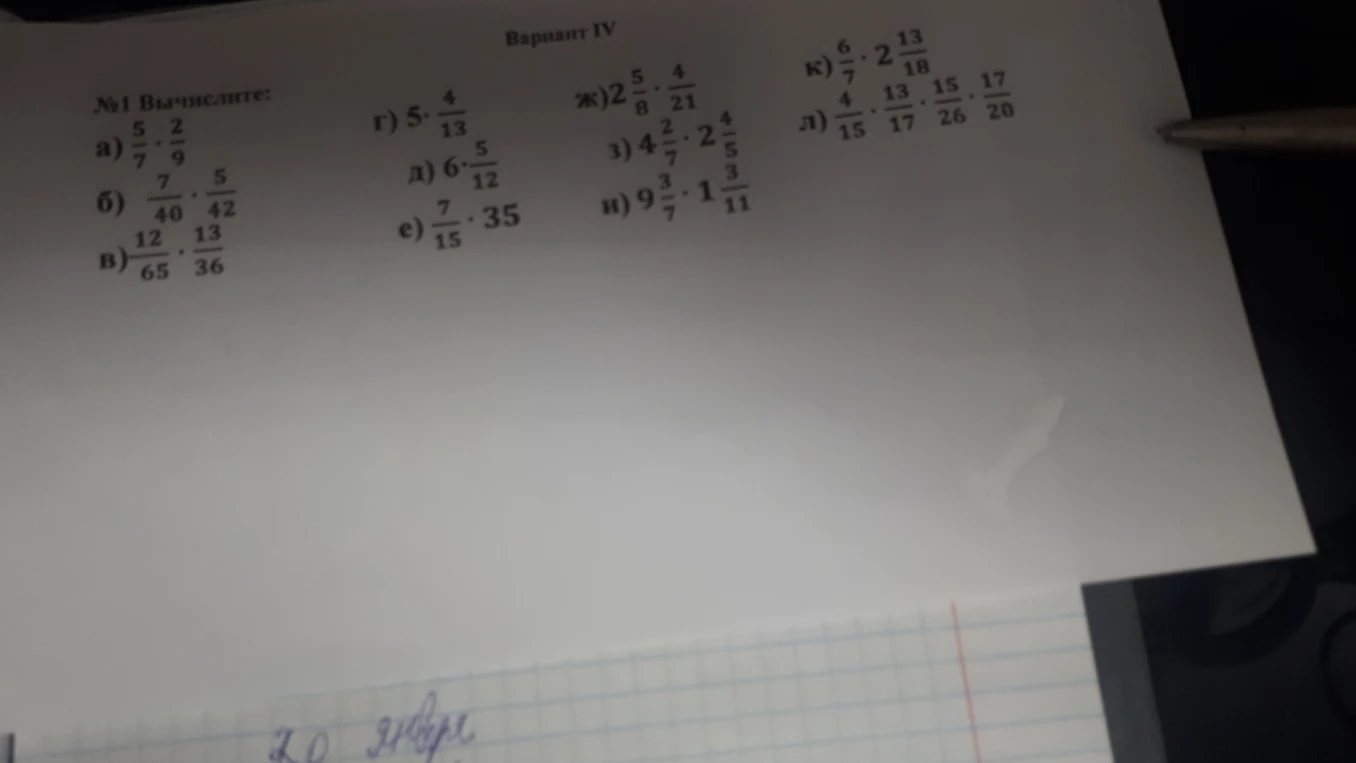 Вариант IV
№1 Вычислите:
а) 5/7 · 2/9
б) 7/40 · 5/42
в) 12/65 · 13/36
г) 5· 4/13
д) 6· 5/12
е) 7/15 · 35
ж)2 5/8 · 4/21
з) 4 2/7 · 2 4/5
и) 9 3/7 · 1 3/11
к) 6/7 · 2 13/18
л) 4/15 · 13/17 · 15/26 · 17/20
20 января